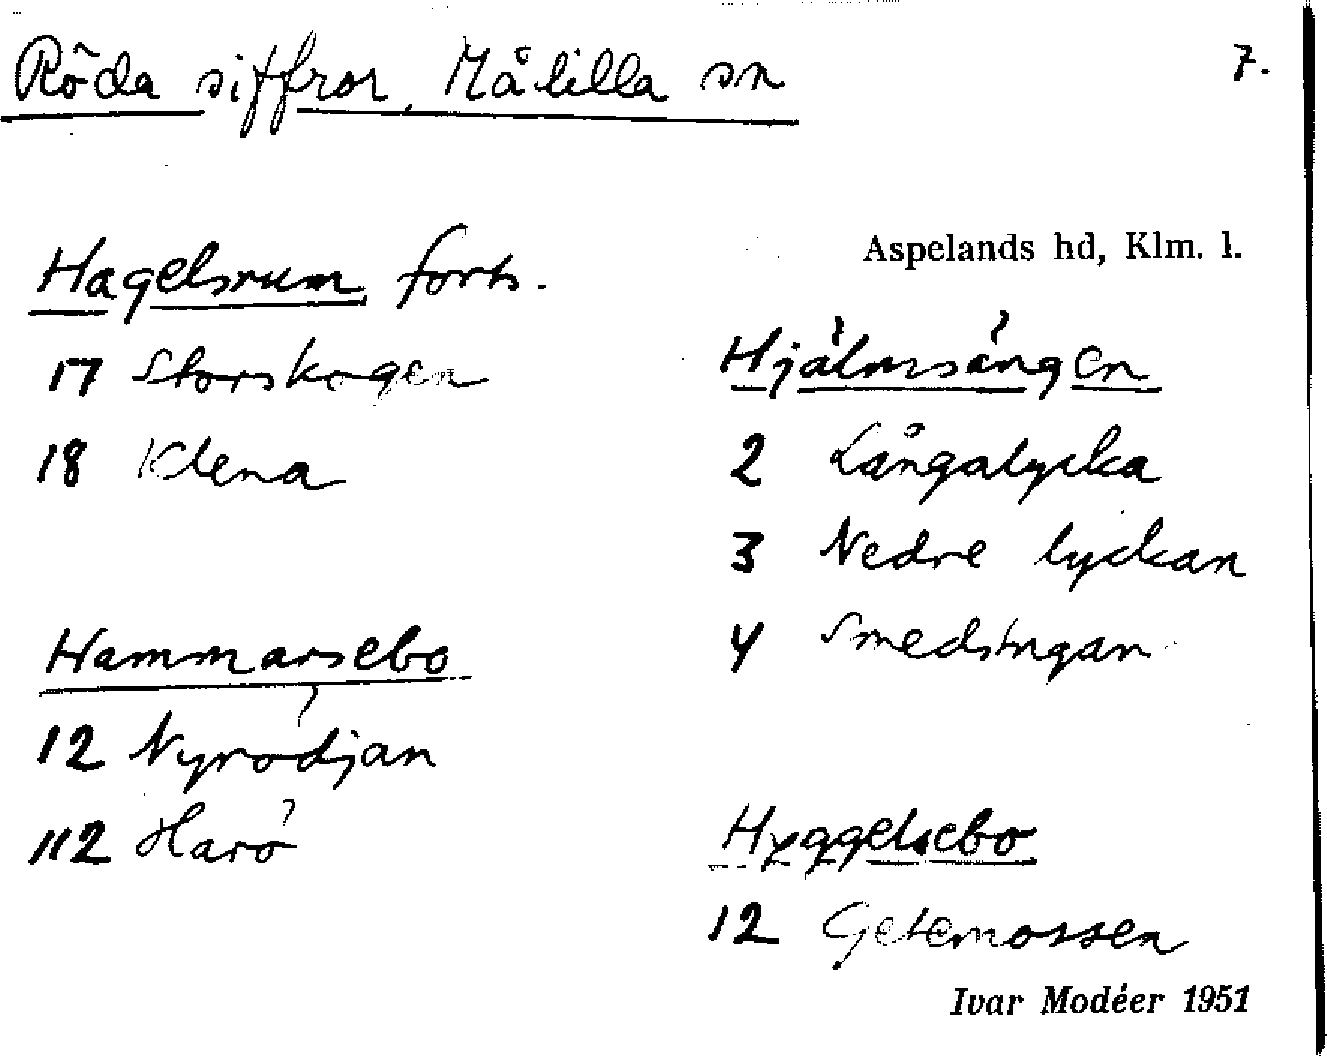 Röda siffror, Målilla sn
7.
Aspelands hd, Klm. l.
Hagelsrum forts.
17 Storskogen
18 Klena
Hammarsebo
12 Nyrödjan
112 Harö
Hjälmsängen
2 Långalycka
3 Nedre lyckan
4 Smedstugan
Hyggelsebo
12 Getemossen
Ivar Modéer 1951